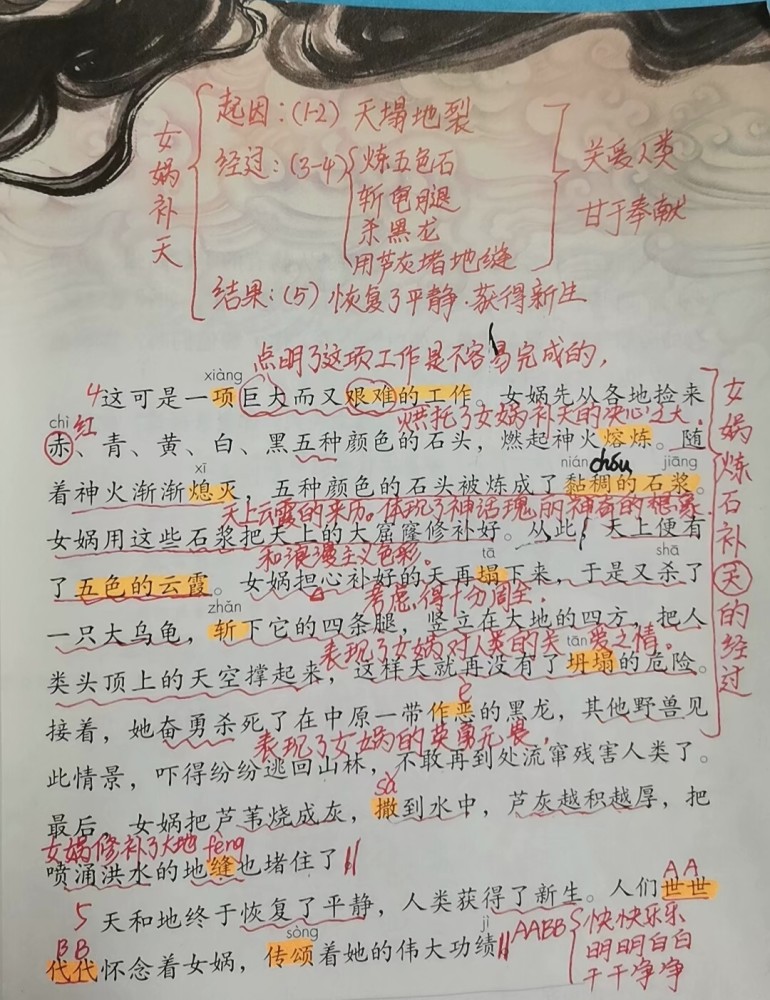 女娲补天
起因：(1-2) 天塌地裂
经过：(3-4) 炼五色石
斩龟腿
杀黑龙
用芦灰堵地缝
结果：(5) 恢复了平静.获得新生
关爱人类
甘于奉献
点明了这项工作是不容易完成的，
xiàng
4这可是一项巨大而又艰难的工作。女娲先从各地捡来
chì 红 烘托了女娲补天的决心之大.
赤、青、黄、白、黑五种颜色的石头，燃起神火熔炼。随
xī nián chóu jiāng
着神火渐渐熄灭，五种颜色的石头被炼成了黏稠的石浆。
天上云霞的来历。体现了神话瑰丽神奇的想象
女娲用这些石浆把天上的大窟窿修补好。从此，天上便有
和浪漫主义色彩。 tā shā
了五色的云霞。女娲担心补好的天再塌下来，于是又杀了
zhǎn 考虑得十分周全.
一只大乌龟，斩下它的四条腿，竖立在大地的四方，把人
表现了女娲对人类的关爱之情. tān
类头顶上的天空撑起来，这样天就再没有了坍塌的危险。
è
接着，她奋勇杀死了在中原一带作恶的黑龙，其他野兽见
表现了女娲的英勇无畏，
此情景，吓得纷纷逃回山林，不敢再到处流窜残害人类了。
sǎ
最后，女娲把芦苇烧成灰，撒到水中，芦灰越积越厚，把
女娲修补了大地 feng
喷涌洪水的地缝也堵住了
A A
5 天和地终于恢复了平静，人类获得了新生。人们世世
B B sòng jì
代代怀念着女娲，传颂着她的伟大功绩
AABB 快快乐乐
明明白白
干干净净
女娲炼石补天的经过